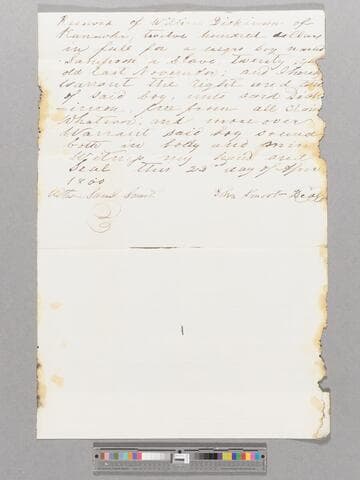 Received of William Dickinson of
Kanawha, twelve hundred dollars
in full for a negro boy named
Sampson a slave twenty
old last November, and I hereby
warrant the right and
of said boy, unto said Dick
inson free from all claims
whatsoever, and moreover
warrant said boy sound
both in body and mind
Witness my hand and
Seal this 23 day of
1860
John Smoot Seal